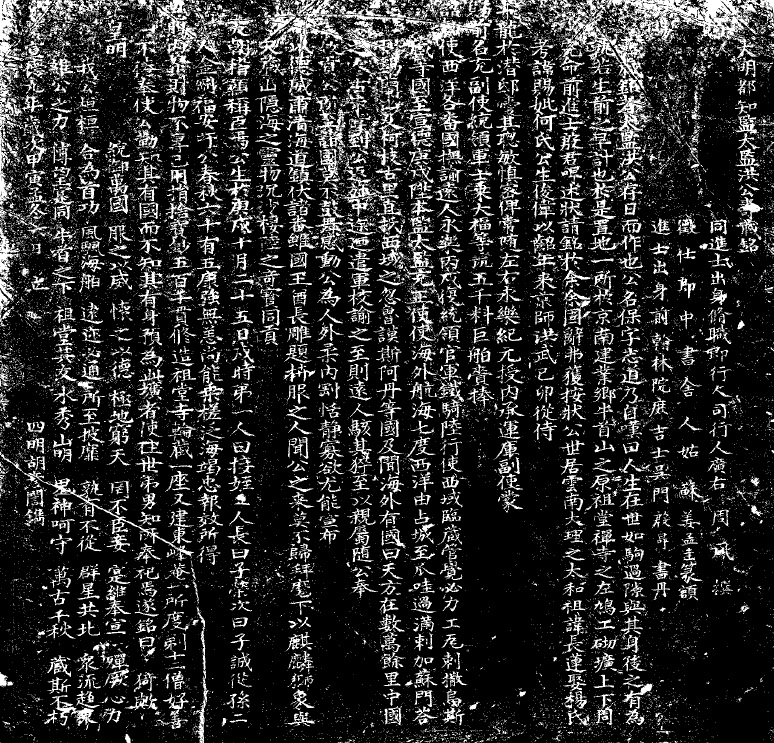 大明都知監太監洪公壽藏銘
同進士出身脩職郎行人司行人廣右周 撰
徵仕郎中書舍人姑蘇姜孟圭篆額
進士出身前翰林院庶吉士 門殷昇書丹
壽藏銘者太監洪公存日而作也公名保字志道乃自筆曰人生在世如駒過隙與其身後之有為
孰若生前之早計也於是置地一所於京南建業鄉牛首山之原祖堂禪寺之左鳩工砌壙上下周
完命前進士殷君 述狀請銘於余余固辭弗獲按狀公世居雲南大理之太和祖諱長運娶楊氏
考諱賜妣何氏公生俊偉以 年來京師洪武己卯從侍
龍於潛邸 其聰敏慎密俾常隨左右永樂紀元授內承運庫副使蒙
前名充副使統領軍士乘大福等號五千料巨舶齎捧
使西洋各番國撫諭遠人永樂丙戌復統領官軍鐵騎陸行使西域臨藏管覺必力工瓦剌撒烏斯
藏等國至宣德庚戌陞本監太監充正使使海外航海七度西洋由占城至爪哇過滿剌加蘇門答
剌錫蘭山及柯枝古里直抵西域之忽魯謨斯阿丹等國及聞海外有國曰天方在數萬餘里中國
之人古未嘗到公返旆中途迺遣軍校諭之至則遠人駭其猝至以親屬隨公奉
貢公所至諸國莫不鼓舞感動公為人外柔內剛恬靜寡欲尤能宣布
以德威肅清海道鎮伏諸番雖國王酋長雕題桥服之人聞公之來莫不歸拜麾下以麒麟獅象與
夫藏山隱海之靈物沉沙棲陸之奇寶同貢
天朝稽顙稱臣焉公生於庚戌十月二十五日戌時弟一人曰 姪二人長曰子榮次曰子誠從孫二
人 福安 公春秋六十有五康強無恙尚能乘槎泛海竭忠報效所得
賜內帑則物不己用捐擔 五百千貫修造祖堂寺輪藏一座又建東峰庵一所度剃十二僧好善
不倦奉使公勤知其有國而不知其有身預為此壙者使住世弟男知所奉祀焉遂銘曰 猗歟
皇明 統御萬國 服之以威 懷之以德 極地窮天 罔不臣妾 寔維奉宣 殫厥心力
我公桓桓 合為首功 風興海舶 遠迩必通 所至披靡 孰有不從 群星共北 衆流趨東
維公之力 博望是同 牛首之下 祖堂其友 水秀山明 鬼神呵守 萬古千秋 藏斯不朽
宣德九年 次甲寅孟冬 日 四明胡 誾鐫